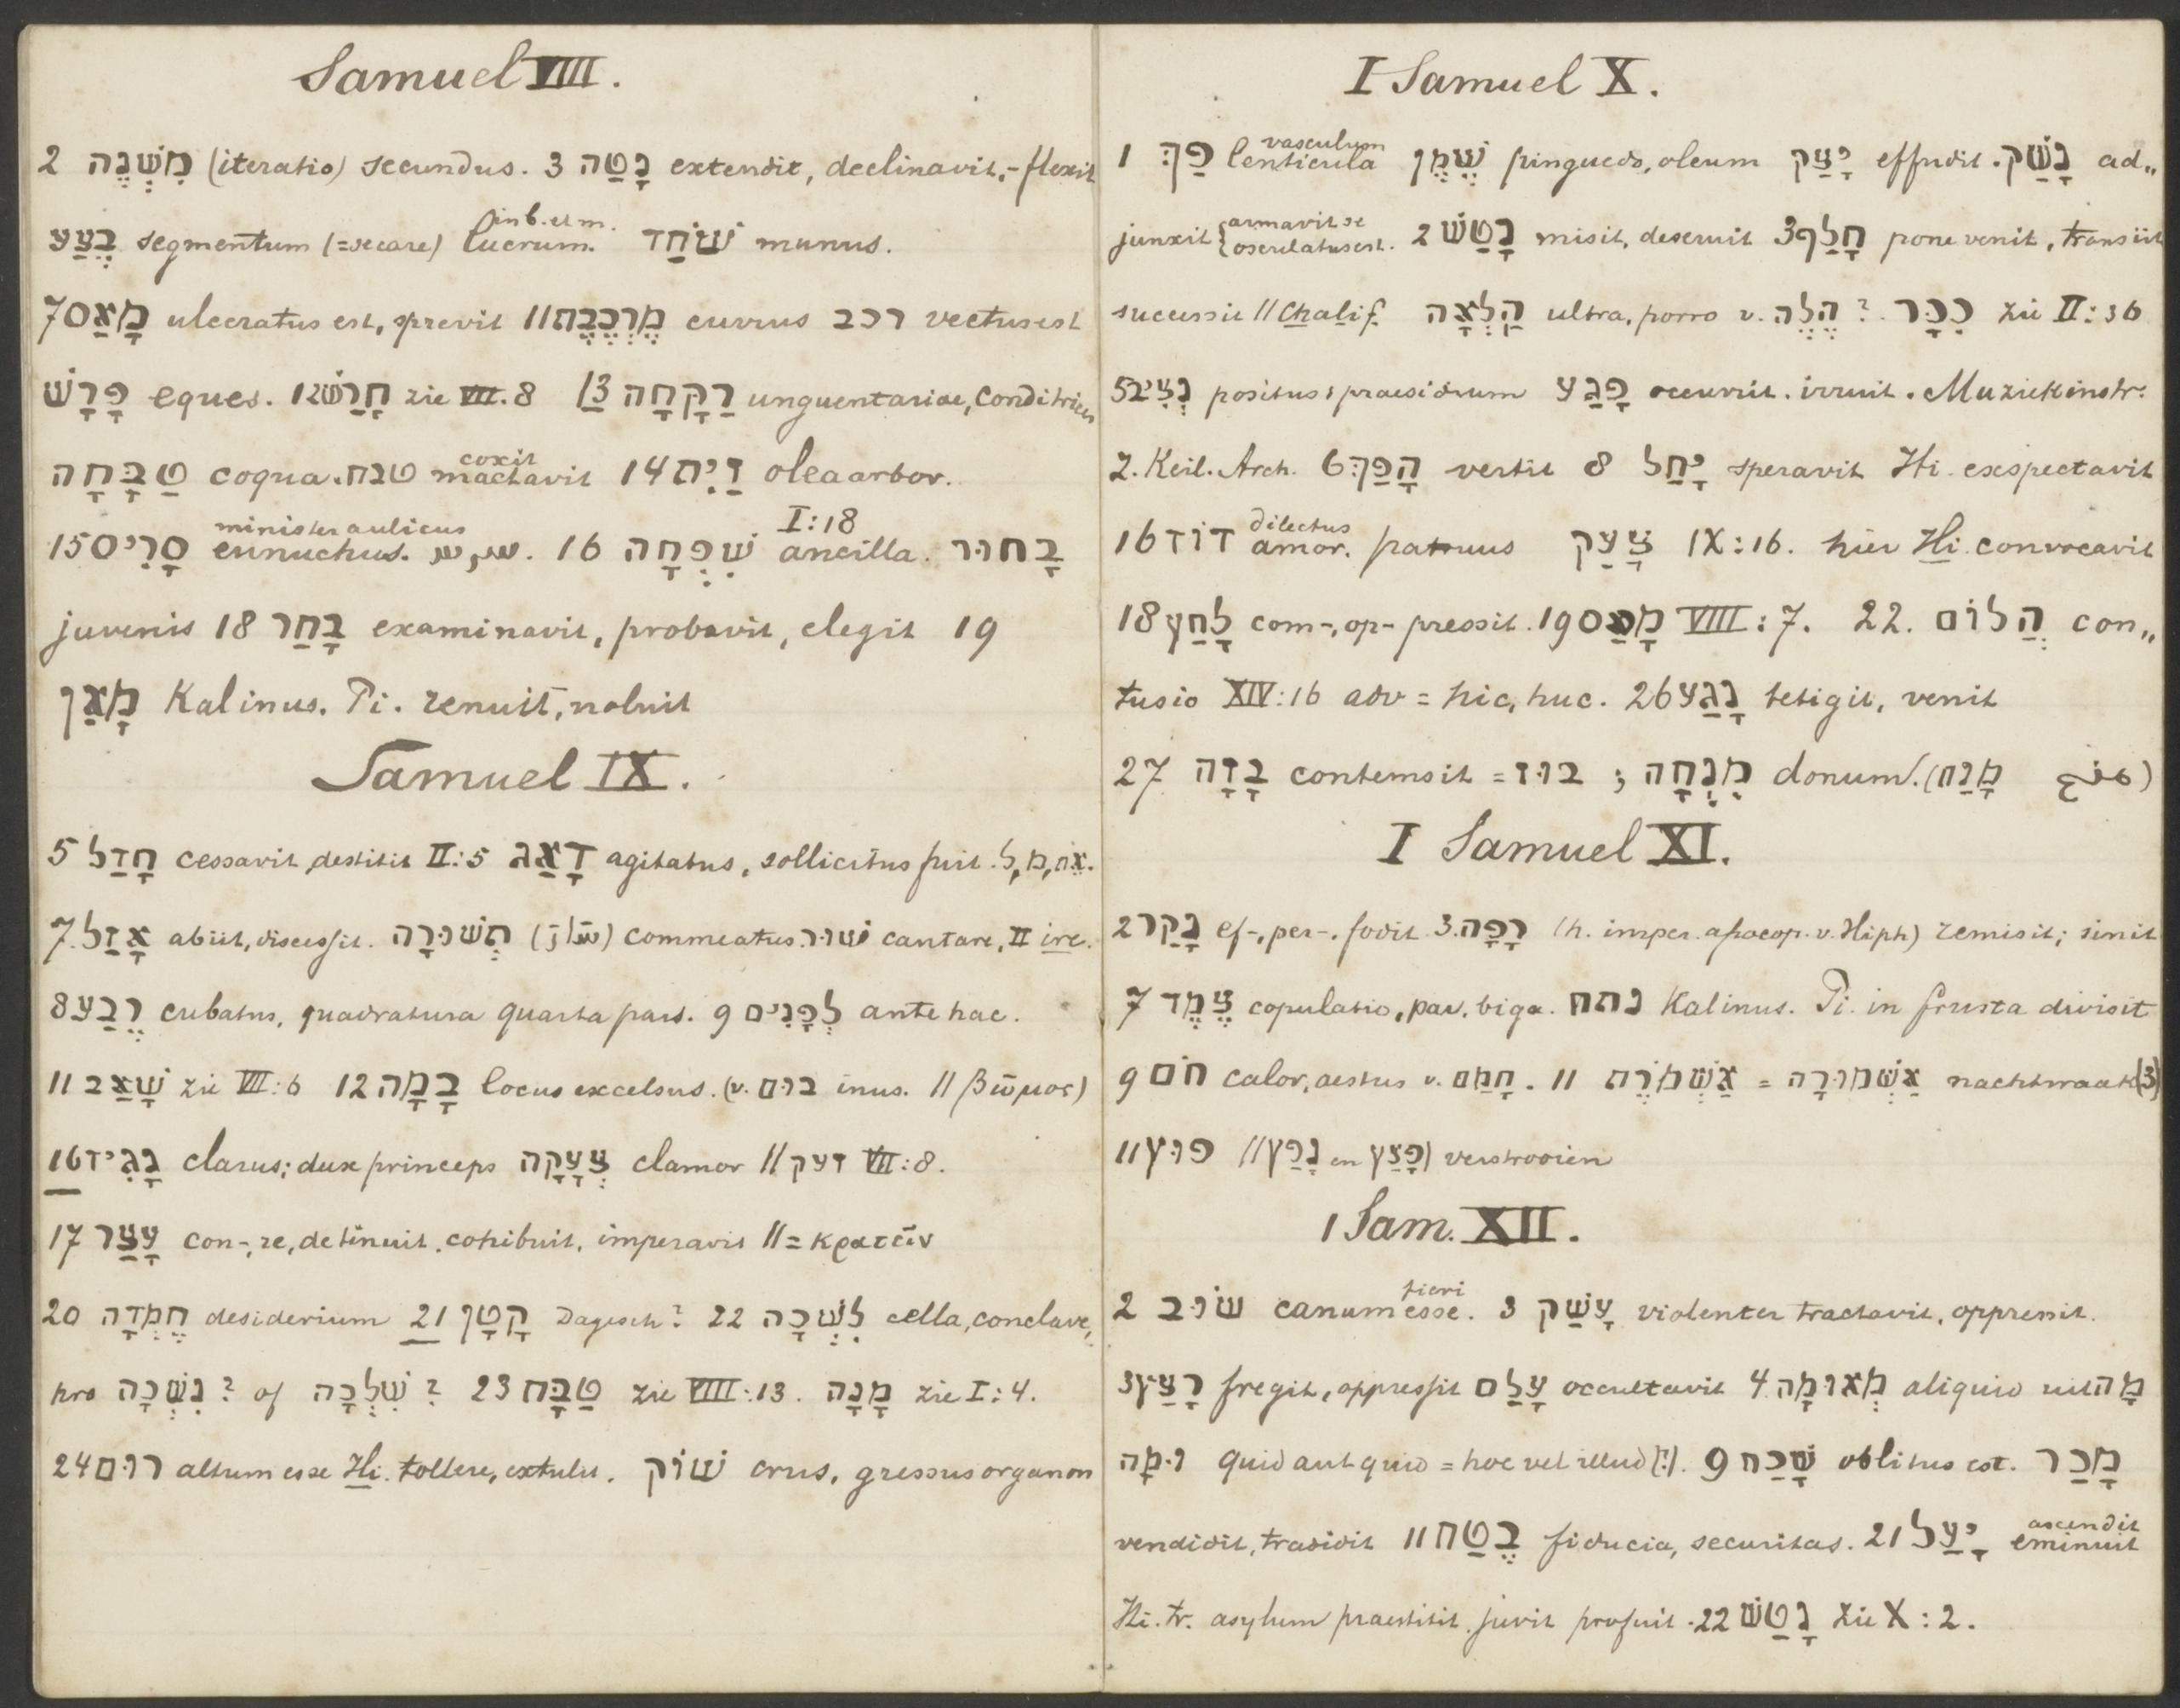 Samuel VIII.
2 מִשְׁנֶה (iteratio) secundus. 3 נָטַה extendit, declinavit, -flexit
בֶּצַע segmentum (=secare) lucrum. in b. et m. שׁוֹחַד munus.
7 מָאַס ulceratus est, sprevit 11 מֶרְכֶּבֶת currus רכב vectus est
פָּרָשׁ eques. 12 חָרַשׁ zie VIII.8 13 רַקָּחָה unguentariae, conditrices
טַבָּחָה coqua. טבח coxit mactavit 14 זַיִת olea arbor.
15 סָרִיס minister aulicus eunuchus. سريس. 16 שִׁפְחָה I:18 ancilla. בָּחוּר
juvenis 18 בָּחַר examinavit, probavit, elegit 19
מָאַן Kal inus. Pi. renuit, noluit
Samuel IX.
5 חָדַל cessavit, destitit II:5 דָּאַג agitatus, sollicitus fuit. ל, מ, את.
7. אָזַל abiit, discessit. תְּשׁוּרָה commeatus. שׁוּר cantare, II ire.
8 רֶבַע cubatus, quadratura quarta pars. 9 לְפָנִים antehac.
11 שָׁאַב zie VII:6 12 בָּמָה locus excelsus. (v. בום inus. || βῶμος)
16 נָגִיד clarus; dux princeps צְעָקָה clamor || זעק VII:8.
17 עָצַר con-, re, detinuit, cohibuit, imperavit || = κρατεῖν
20 חֶמְדָּה desiderium 21 קָטָן Dagesch? 22 לִשְׁכָּה cella, conclave,
pro נִשְׁכָּה? of שִׁלְכָּה? 23 טַבָּח zie VIII:13. מָנָה zie I:4.
24 רוּם altum esse Hi. tollere, extulit. שׁוֹק crus, gressus organon
I Samuel X.
1 פַּךְ vasculum lenticula שֶׁמֶן pinguedo, oleum יָצַק effudit. נָשַׁק ad„
junxit {armavit se osculatus est. 2 נָטַשׁ misit, deseruit 3 חָלַף pone venit, transiit
successit || Chalif. הָלְאָה ultra, porro v. הֶלֶה? כִּכָּר zie II:36
5 נְצִיב positus; praesidium פָּגַע occurrit. irruit. Muziekinstr:
2. Keil. Arch. 6 הָפַךְ vertit 8 יָחַל speravit Hi. exspectavit
16 דּוֹד dilectus amor. patruus צָעַק IX:16. hier Hi. convocavit
18 לָחַץ com-, op- pressit. 19 מָאַס VIII:7. 22. הֲלוֹם con„
tusio XIV:16 adv = hic, huc. 26 נָגַע tetigit, venit
27 בָּזָה contemsit = בוּז; מִנְחָה donum. (מָנַח منح)
I Samuel XI.
2 נָקַר ef-, per-. fodit 3. רָפָה (h. imper. apocop. v. Hiph) remisit; sinit
7 צֶמֶד copulatio, par, biga. נתח Kal inus. Pi. in frusta divisit
9 חֹם calor, aestus v. חָמַם. 11 אַשְׁמֹרֶת = אַשְׁמוּרָה nachtwaak (3)
11 פּוּץ || נָפַץ en פָּצַץ) verstrooien
1 Sam. XII.
2 שׂוּב canum fieri esse. 3 עָשַׁק violenter tractavit, oppressit.
3 רָצַץ fregit, oppressit עָלַם occultavit 4. מְאוּמָה aliquid uit מָה
וּמָה quid aut quid = hoc vel illud (?). 9 שָׁכַח oblitus est. מָכַר
vendidit, tradidit 11 בֶּטַח fiducia, securitas. 21 יָעַל ascendit eminuit
Hi. tr. asylum praestitit juvit profuit. 22 נָטַשׁ zie X:2.